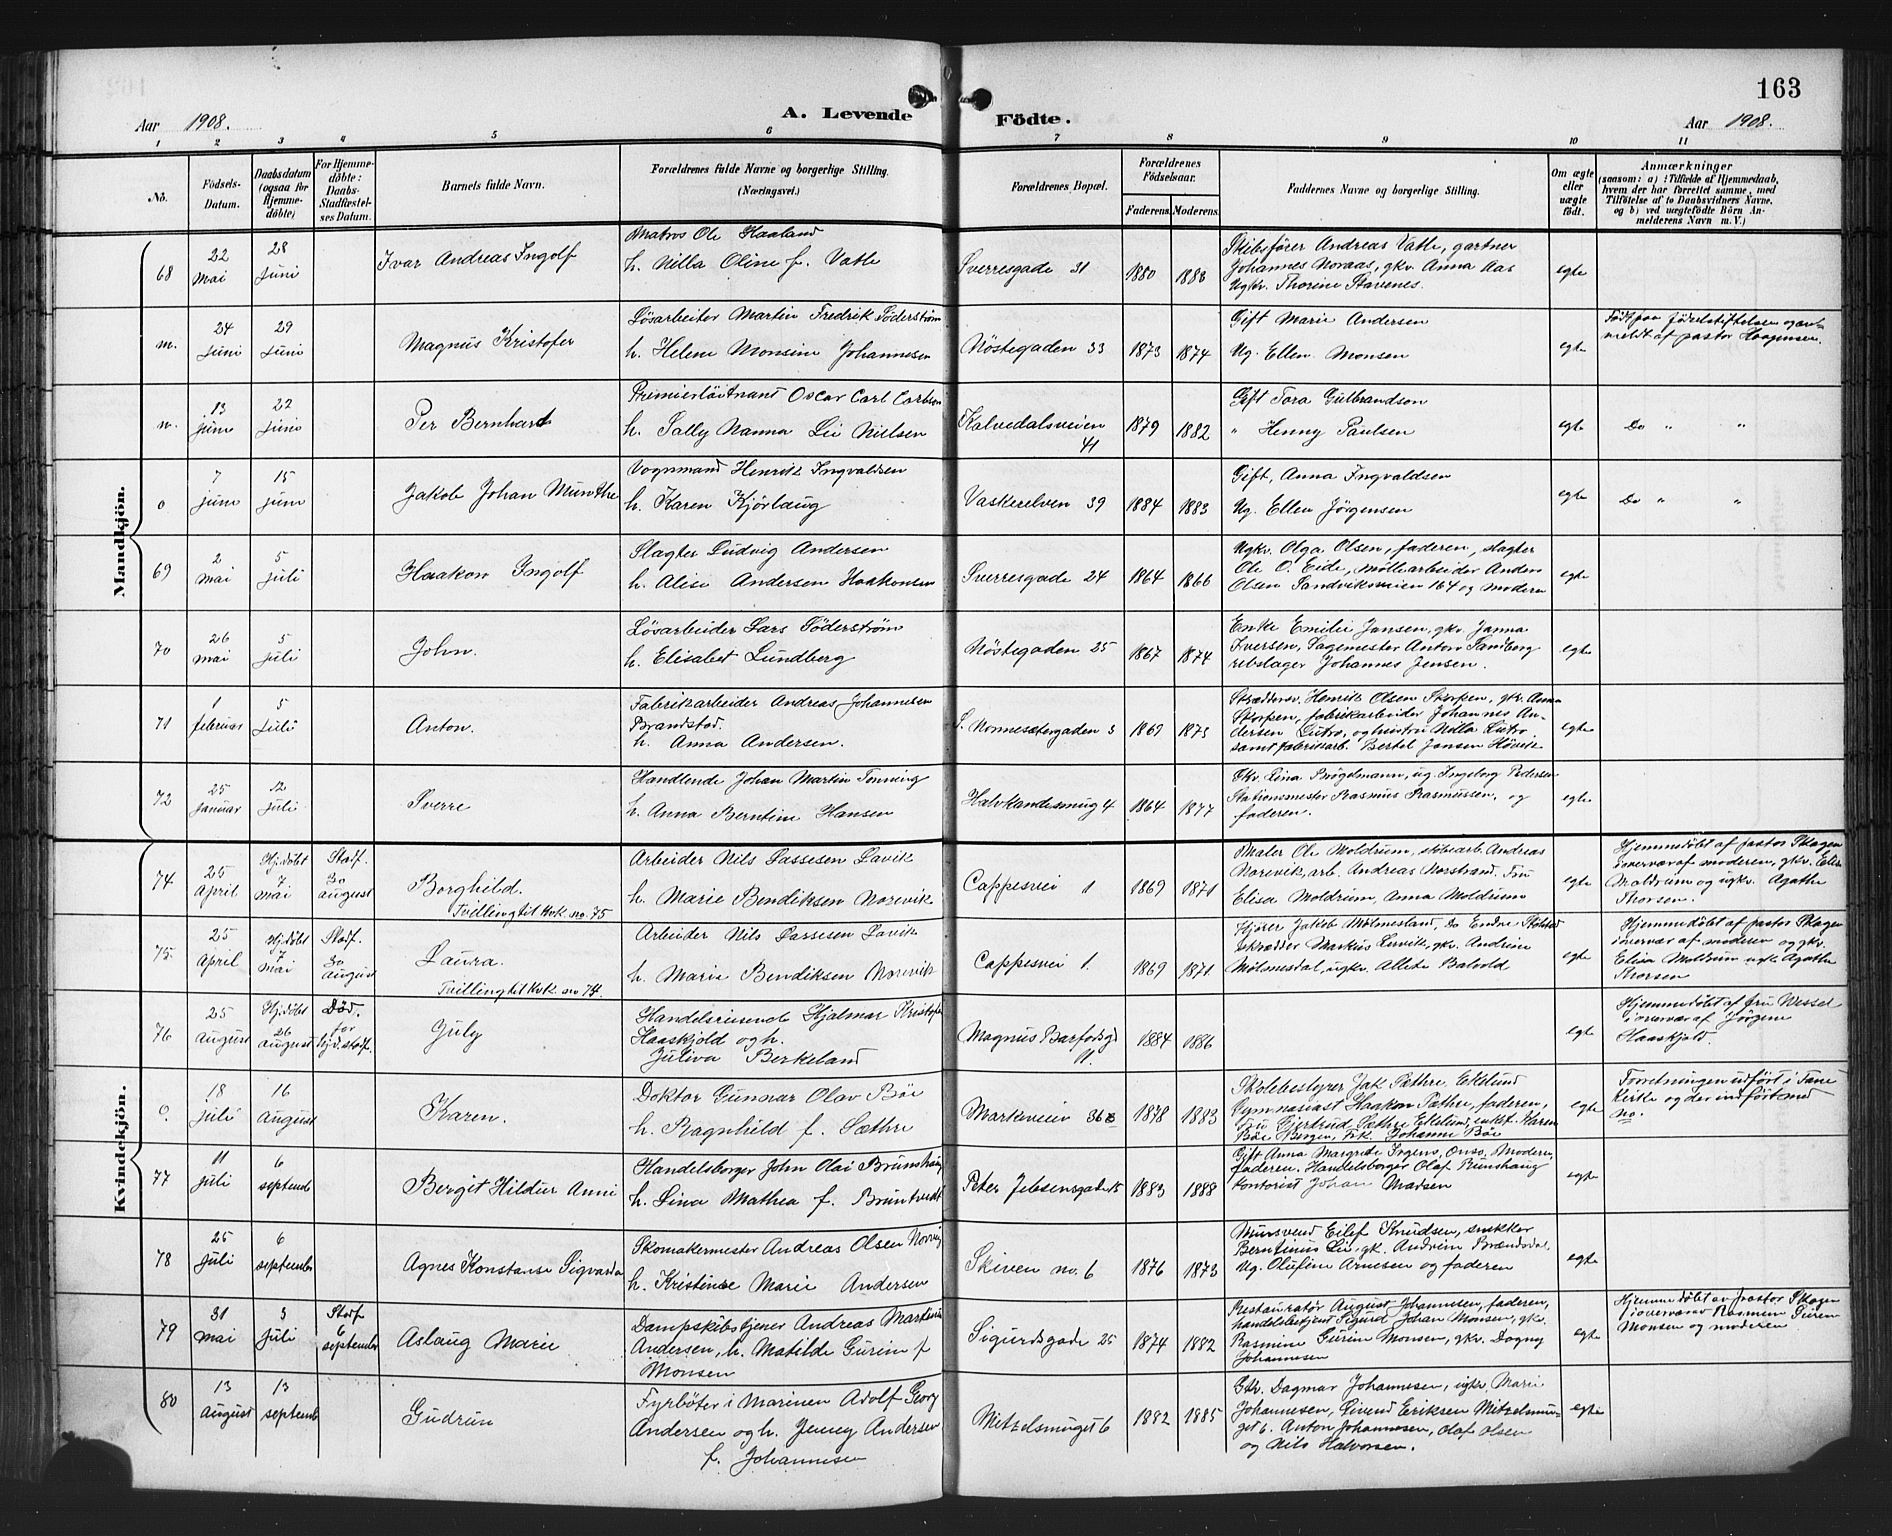 163
Aar 1908.
A. Levende Födte.
Aar 1908.
1 2 3 4 5 6 7 8 9 10 11
No.
Födsels-Datum.
Daabsdatum (ogsaa for Hjemme-döbte)
For Hjemme-döbte: Daabs-Stadfæstel-ses Datum.
Barnets fulde Navn.
Forældrenes fulde Navne og borgerlige Stilling. (Næringsvei.)
Forældrenes Bopæl.
Forældrenes Födselsaar.
Faderens. Moderens.
Faddernes Navne og borgerlige Stilling.
Om ægte eller uægte födt.
Anmærkninger
(saasom: a) i Tilfælde af Hjemmedaab, hvem der har forrettet samme, med Tilföielse af to Daabsvidners Navne, og b) ved uægtefödte Börn An-melderens Navn m. V.)
Mandkjön.
68 22 Mai 28 Juni Ivar Andreas Ingolf
Matros Ole Haaland
h. Nilla Oline f. Vatle
Sverresgade 31 1880 1883
Skibsfører Andreas Vatle, gartner
Johannes Noraas, gkv. Anna Aas
Ugkv. Thorine Stavenes.
egte
m. 24 Juni 29 Juni Magnus Kristofer
Løsarbeider Martin Fredrik Söderström
h. Helene Monsine Johannesen
Nöstegaden 33 1873 1874
Gift Marie Andersen
Ug. Ellen Monsen
egte
Födt paa Födselstiftelsen og an-
meldt af pastor Haagensen.
n. 13 Juni 22 Juni Per Bernhard
Premierløitnant Oscar Carl Carlson
h. Sally Nanna Lie Nielsen
Kalvedalsveien 41 1879 1882
Gift Tora Gulbrandson
" Henny Paulsen
egte
Do " "
o 7 Juni 15 Juni Jakob Johan Munthe
Vognmand Henrik Ingvaldsen
h. Karen Kjörlaug
Vaskerelven 39 1884 1883
Gift, Anna Ingvaldsen
Ug. Ellen Jörgensen
egte
Do " "
69 2 Mai 5 Juli Haakon Ingolf
Slagter Ludvig Andersen
h. Alise Andersen Haakonsen
Sverresgade 24 1864 1866
Ugkv. Olga Olsen, faderen, slagter
Ole O. Eide, möllearbeider Anders
Olsen Sandviksveien 164 og moderen
egte
70 26 Mai 5 Juli John.
Løsarbeider Lars Söderström
h. Elisabet Lundberg
Nöstegaden 25 1867 1874
Enke Emilie Jansen, gkv. Janna
Iversen, Sagemester Anton Sandberg
rebslager Johannes Jensen.
egte
71 1 februar 5 Juli Anton.
Fabrikarbeider Andreas Johannesen
Brandstad.
h. Anna Andersen.
S. Nonnesætergaden 3 1869 1873
Skræddersv. Henrik Olsen Skorpen, gkv. Anna
Skorpen, fabrikarbeider Johannes An-
dersen Lutro, og hustru Nilla Lutro
samt fabrikarb. Bertel Jansen Hövik
egte
72 25 Januar 12 Juli Sverre
Handlende Johan Martin Tonning
h. Anna Berntine Hansen
Halvkandesmug 4 1864 1877
Gkv. Lina Brögelmann, ug. Ingeborg Pedersen
Stationsmester Rasmus Rasmussen, og
faderen.
egte
Kvindekjön.
74 25 April Hj.döbt 7 Mai Stadf. 30 august Borghild.
Tvilling til Kvk. no. 75
Arbeider Nils Lassesen Lavik
h. Marie Bendiksen Norevik
Cappesvei 1 1869 1871
Maler Ole Moldrum, skibsarb. Andreas
Norevik, arb. Andreas Norstrand, Fru
Elisa Moldrum, Anna Moldrum
egte
Hjemmedöbt af pastor Skagen
i overvær af moderen, gkv. Elisa
Moldrum og ugkv. Agathe
Thorsen.
75 25 April Hj.döbt 7 Mai Stadf. 30 august Laura.
Tvilling til Kvk. no 74.
Arbeider Nils Lassesen Lavik
h. Marie Bendiksen Norevik
Cappesvei 1. 1869 1871
Hjører Jakob Mölmesland, do Endre
skrædder Markus Lervik, gkv. Andrine
Mölmesdal, ugkv. Allete Balvold
egte
Hjemmedöbt af pastor Skagen
i overvær af moderen og gkv.
Elisa Moldrum ugk. Agathe
Thorsen
76 25 August Hj.döbt 26 august Död. för hjd. stadf. July
Handelsreisende Hjalmar Kristofer
Haaskjold og h.
Juliva Berkeland
Magnus Barfodsgd 11. 1884 1886
egte
Hjemmedöbt af fru Wessel
i overvær af Jörgine
Haaskjold.
o 18 Juli 16 August Karen.
Doktor Gunnar Olav Böe
h. Ragnhild f. Sæthre
Markeveien 36 1878 1883
Skolebestyrer Jak. Sæthre, Ekelund
Gymnasiast Haakon Sæthre, faderen,
Fru Gjertrud Sæthre Ekelund, enkef. Karen
Böe Bergen, Frk. Johanne Böe
egte
Forretningen udfört i Fane
Kirke og der indfört med
no.
77 11 Juli 6 septemb Bergit Hildur Anni
Handelsborger John Olai Brunshaug
h. Lina Mathea f. Bruntveit
Peter Jebsensgade 15 1883 1888
Gift Anna Margrete Irgens, Onso, Moderen,
faderen. Handelsborger Olaf Runshaug
Kontorist Johan Madsen
egte
78 25 Juli 6 september Agnes Konstanse Sigvarda
Skomakermester Andreas Olsen Norvig
h. Kristine Marie Andersen
Skiven no. 6 1876 1873
Mursvend Eilef Knudsen, snekker
Berntinus Lie, gk. Andrine Brændsdal,
Ug. Olufine Arnesen og faderen
egte
79 31 Mai 3 Juli Stadf 6 september Aslaug Marie
Dampskibstjener Andreas Martinus
Andersen, h. Matilde Gurine f.
Monsen
Sigurdsgade 25 1874 1882
Restauratør August Johannesen, faderen,
handelsbetjent Sigurd Johan Monsen, gkv.
Rasmine Gurine Monsen, gkv. Dagny
Johannesen
egte
Hjemmedöbt av pastor Skagen
i overvær av Rasmine Gurine
Monsen og moderen
80 13 August 13 septemb Gudrun
Fyrböter i Marinen Adolf Georg
Andersen og h. Jenny Andersen
f. Johannesen
Mitzelsmuget 6 1882 1885
Gkv. Dagmar Johannesen, ugkv. Marie
Johannesen, Sivend Eriksen Mitzelsmu-
get 6. Anton Johannesen, Olaf Olsen
og Nils Halvorsen.
egte